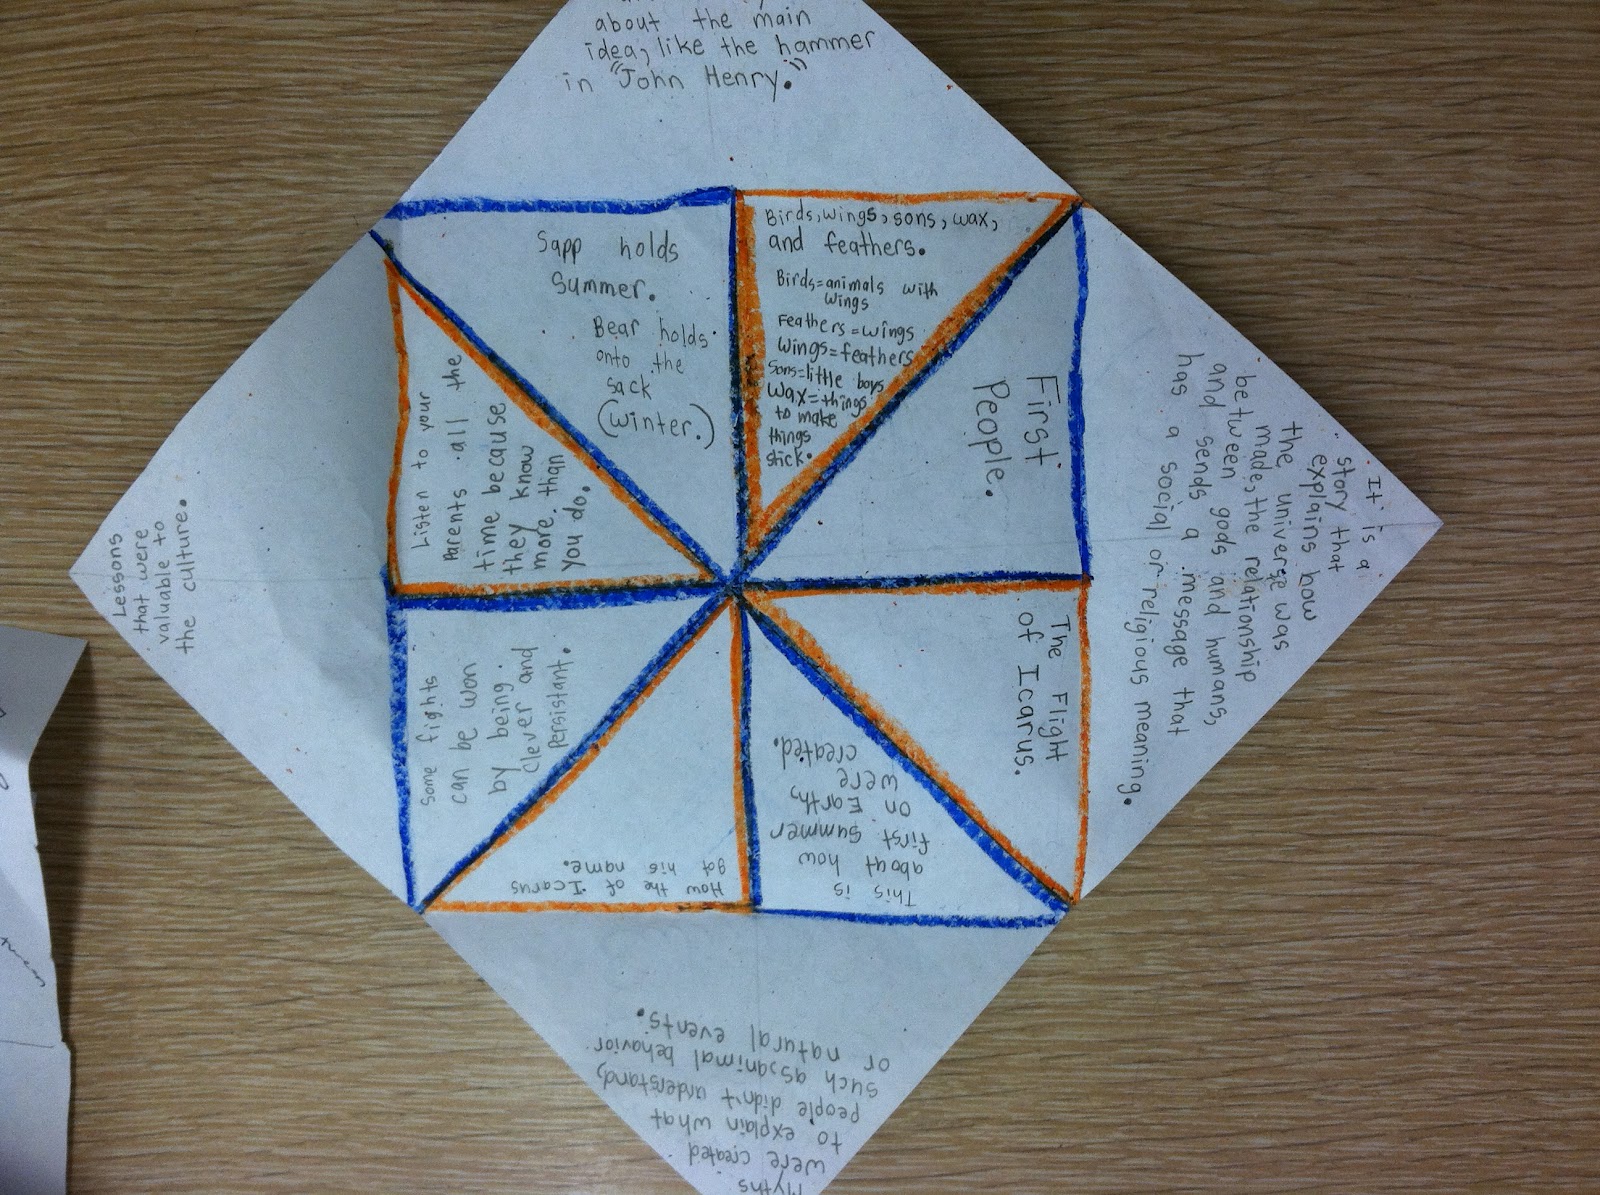 about the main
idea, like the hammer
in "John Henry."
Sapp holds
Summer.
Bear holds
onto the
sack
(winter.)
Birds, wings, sons, wax,
and feathers.
Birds=animals with
wings
Feathers=wings
wings=feathers
Sons=little boys
wax=things
to make
things
stick.
First
People.
It is a
story that
explains how
the universe was
made, the relationship
between gods and humans,
and sends a message that
has a social or religious meaning.
The Flight
of Icarus.
This is
about how
first summer
on Earth,
were
created.
How the of Icarus
got his name.
Myths
were created
to explain what
people didn't understand,
such as, animal behavior
or natural events.
Some fights
can be won
by being
clever and
Persistant.
Listen to your
Parents all the
time because
they know
more than
you do.
Lessons
that were
valuable to
the culture.